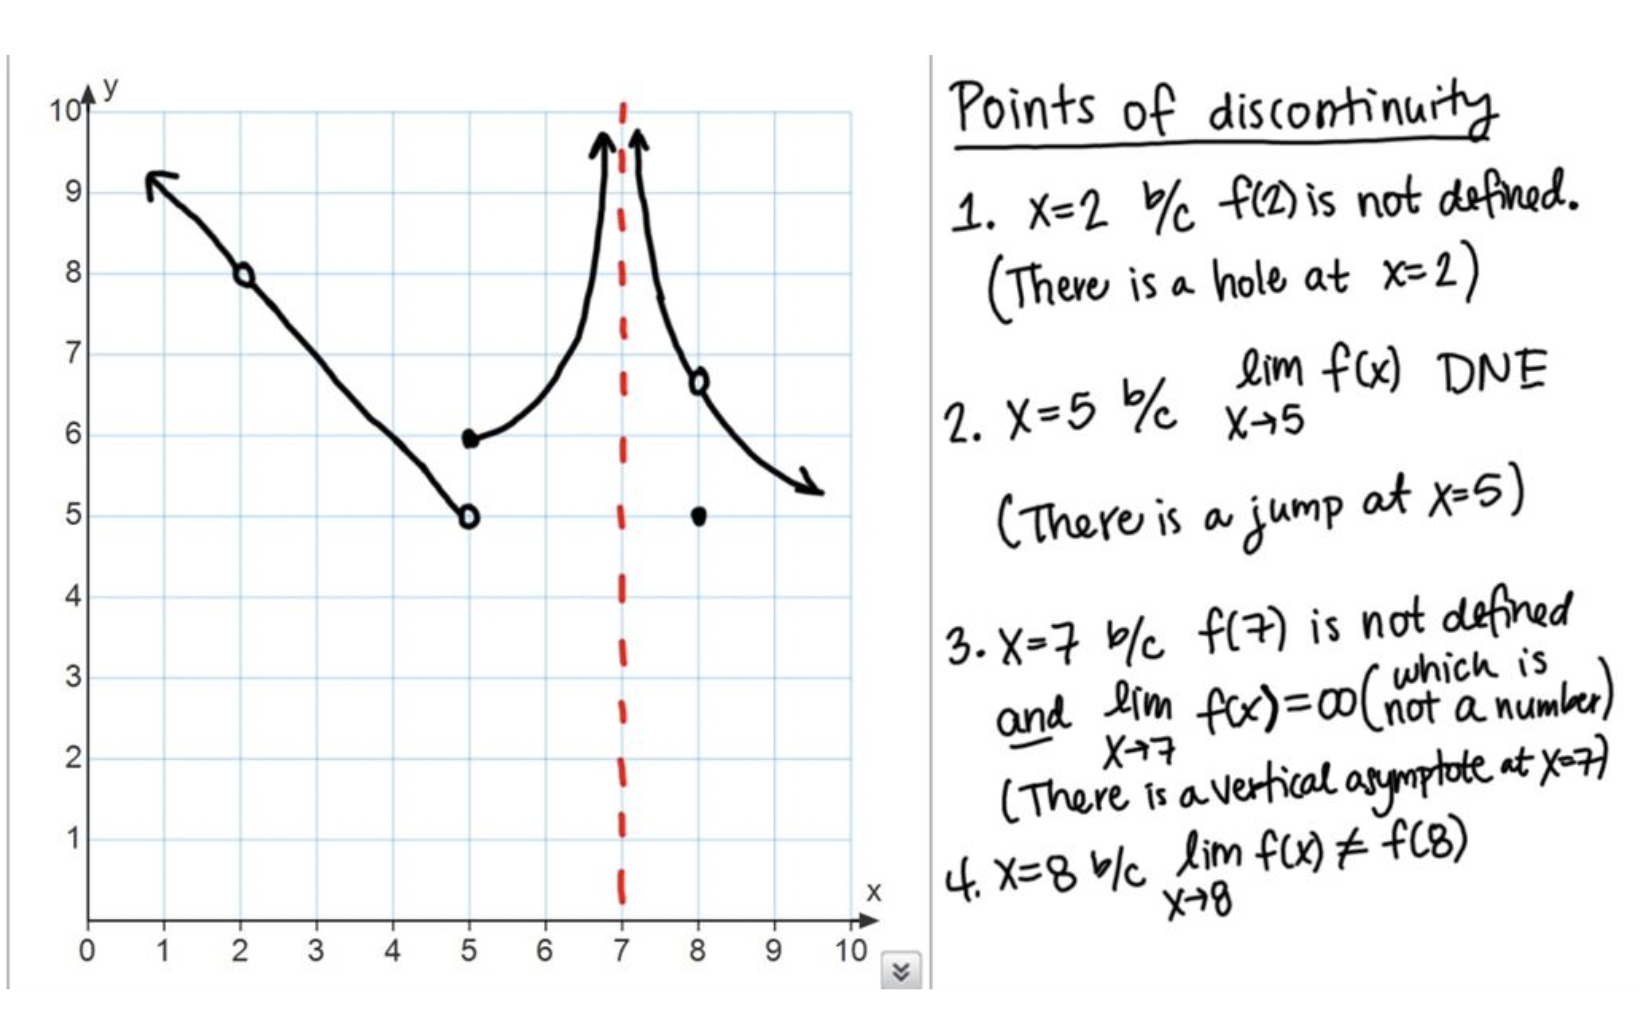 y
10
9
8
7
6
5
4
3
2
1
x
0 1 2 3 4 5 6 7 8 9 10
Points of discontinuity
1. x=2 b/c f(2) is not defined.
(There is a hole at x=2)
2. x=5 b/c lim f(x) DNE
x→5
(There is a jump at x=5)
3. x=7 b/c f(7) is not defined
and lim f(x)=∞ (which is not a number)
x→7
(There is a vertical asymptote at x=7)
4. x=8 b/c lim f(x) ≠ f(8)
x→8